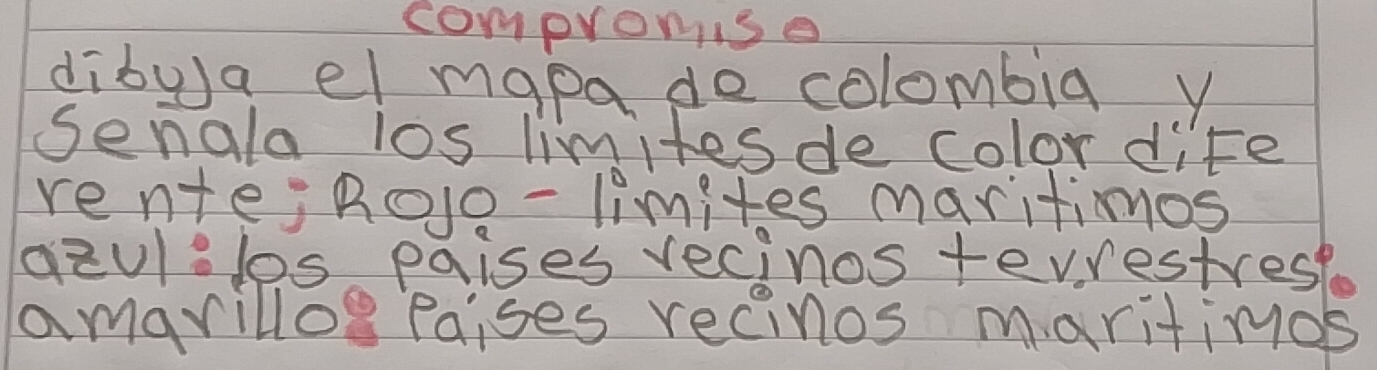 compromiso
dibuja el mapa de colombia y
Señala los limites de color dife
rente; Rojo - limites maritimos
azul: los paises vecinos terrestres.
amarillo: Paises vecinos maritimos